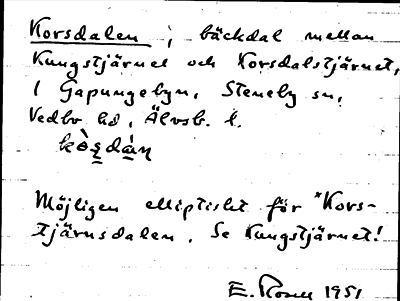 Korsdalen, bäckdal mellan
Kungstjärnet och Korsdalstjärnet,
i Gapungebyn, Steneby sn,
Vedbo hd, Älvsb. l.
Möjligen elliptiskt för *Kors-
tjärnsdalen. Se Kungstjärnet!
1951